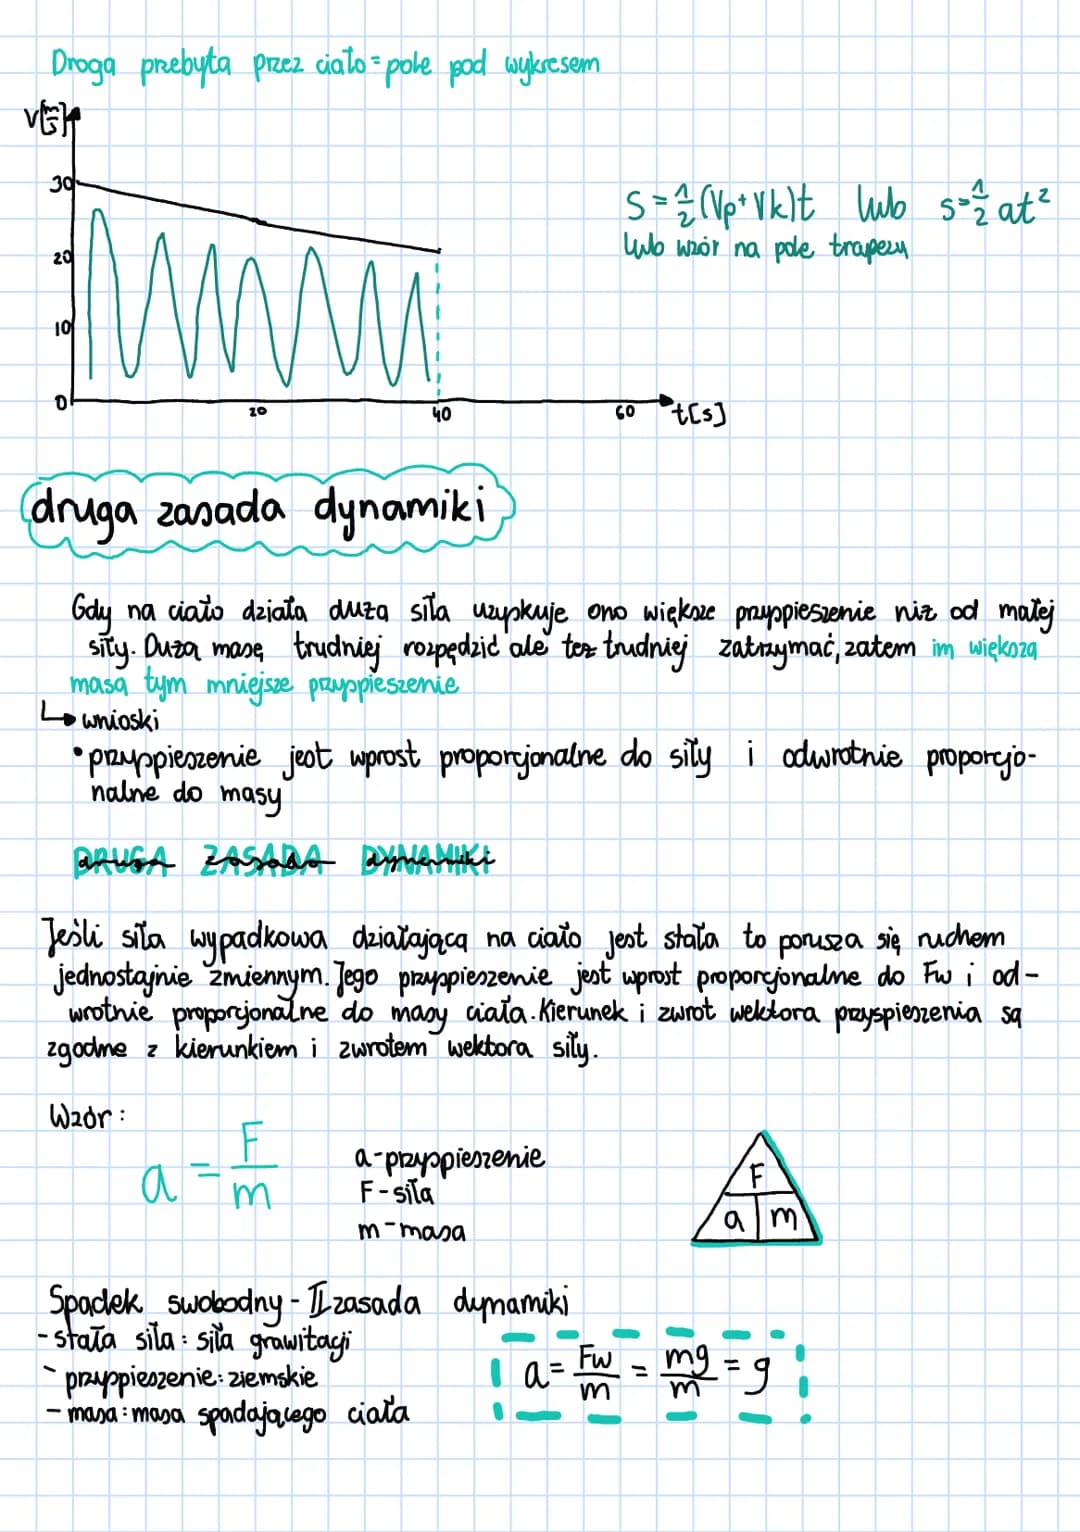 Droga przebyta przez ciało = pole pod wykresem
V[m/s]
30
20
10
0
20
40
60
t[s]
S = 1/2 (Vp + Vk)t lub s = 1/2 at²
lub wzór na pole trapezu
druga zasada dynamiki
Gdy na ciało działa duża siła uzyskuje ono większe przyspieszenie niż od małej
siły. Dużą masę trudniej rozpędzić ale też trudniej zatrzymać, zatem im większa
masa tym mniejsze przyspieszenie
↳ wnioski
• przyspieszenie jest wprost proporcjonalne do siły i odwrotnie proporcjo-
nalne do masy
DRUGA ZASADA DYNAMIKI
Jeśli siła wypadkowa działającą na ciało jest stała to porusza się ruchem
jednostajnie zmiennym. Jego przyspieszenie jest wprost proporcjonalne do Fw i od-
wrotnie proporcjonalne do masy ciała. Kierunek i zwrot wektora przyspieszenia są
zgodne z kierunkiem i zwrotem wektora siły.
Wzór:
a = F/m
a - przyspieszenie
F - siła
m - masa
F
a m
Spadek swobodny - II zasada dynamiki
- stała siła: siła grawitacji
- przyspieszenie: ziemskie
- masa: masa spadającego ciała
a = Fw/m = mg/m = g